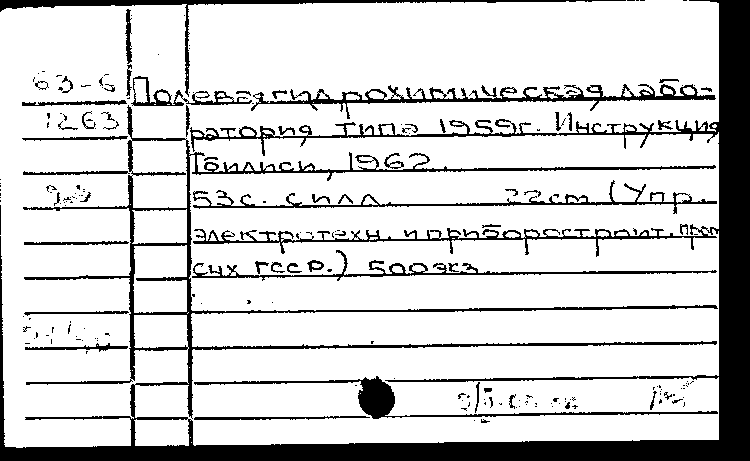 63-6 Полевая гидрохимическая лабо-
1263 ратория типа 1959г. Инструкция
Тбилиси, 1962.
53с. с илл. 22cm (Упр.
электротехн. и приборостроит. пром
снх ГССР.) 500экз.